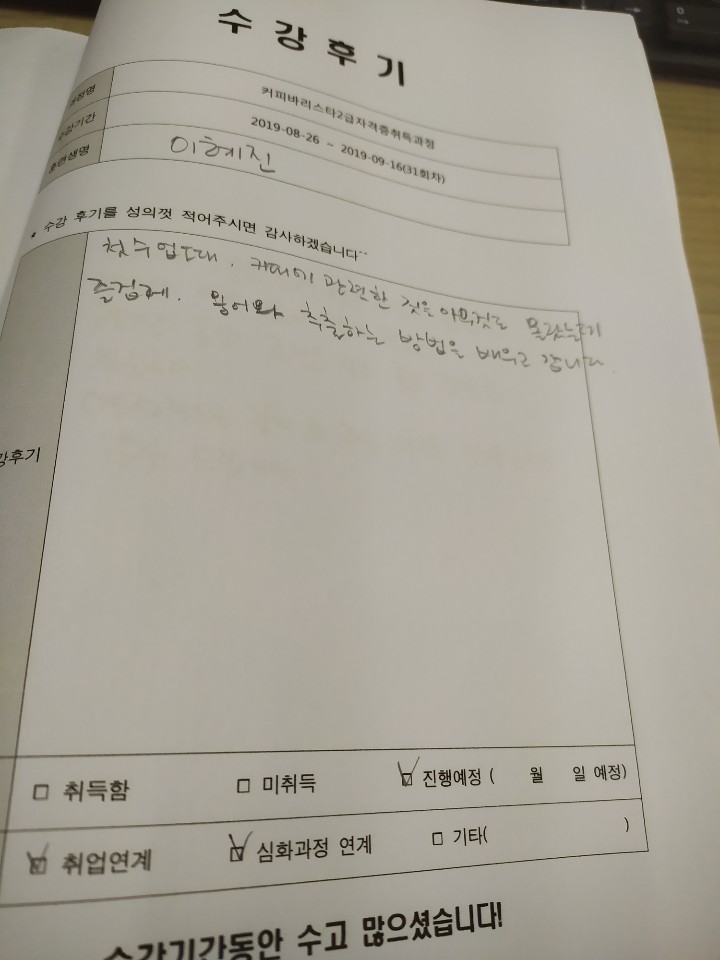 수 강 후 기
과정명 커피바리스타2급자격증취득과정
수강기간 2019-08-26 ~ 2019-09-16(31회차)
훈련생명 이혜진
* 수강 후기를 성의껏 적어주시면 감사하겠습니다^^
첫수업때, 커피에 관련한 것은 아무것도 몰랐는데
즐겁게, 용어와 추출하는 방법을 배우고 갑니다.
강후기
□ 취득함 □ 미취득 ☑ 진행예정 ( 월 일 예정)
☑ 취업연계 ☑ 심화과정 연계 □ 기타( )
수강기간동안 수고 많으셨습니다!